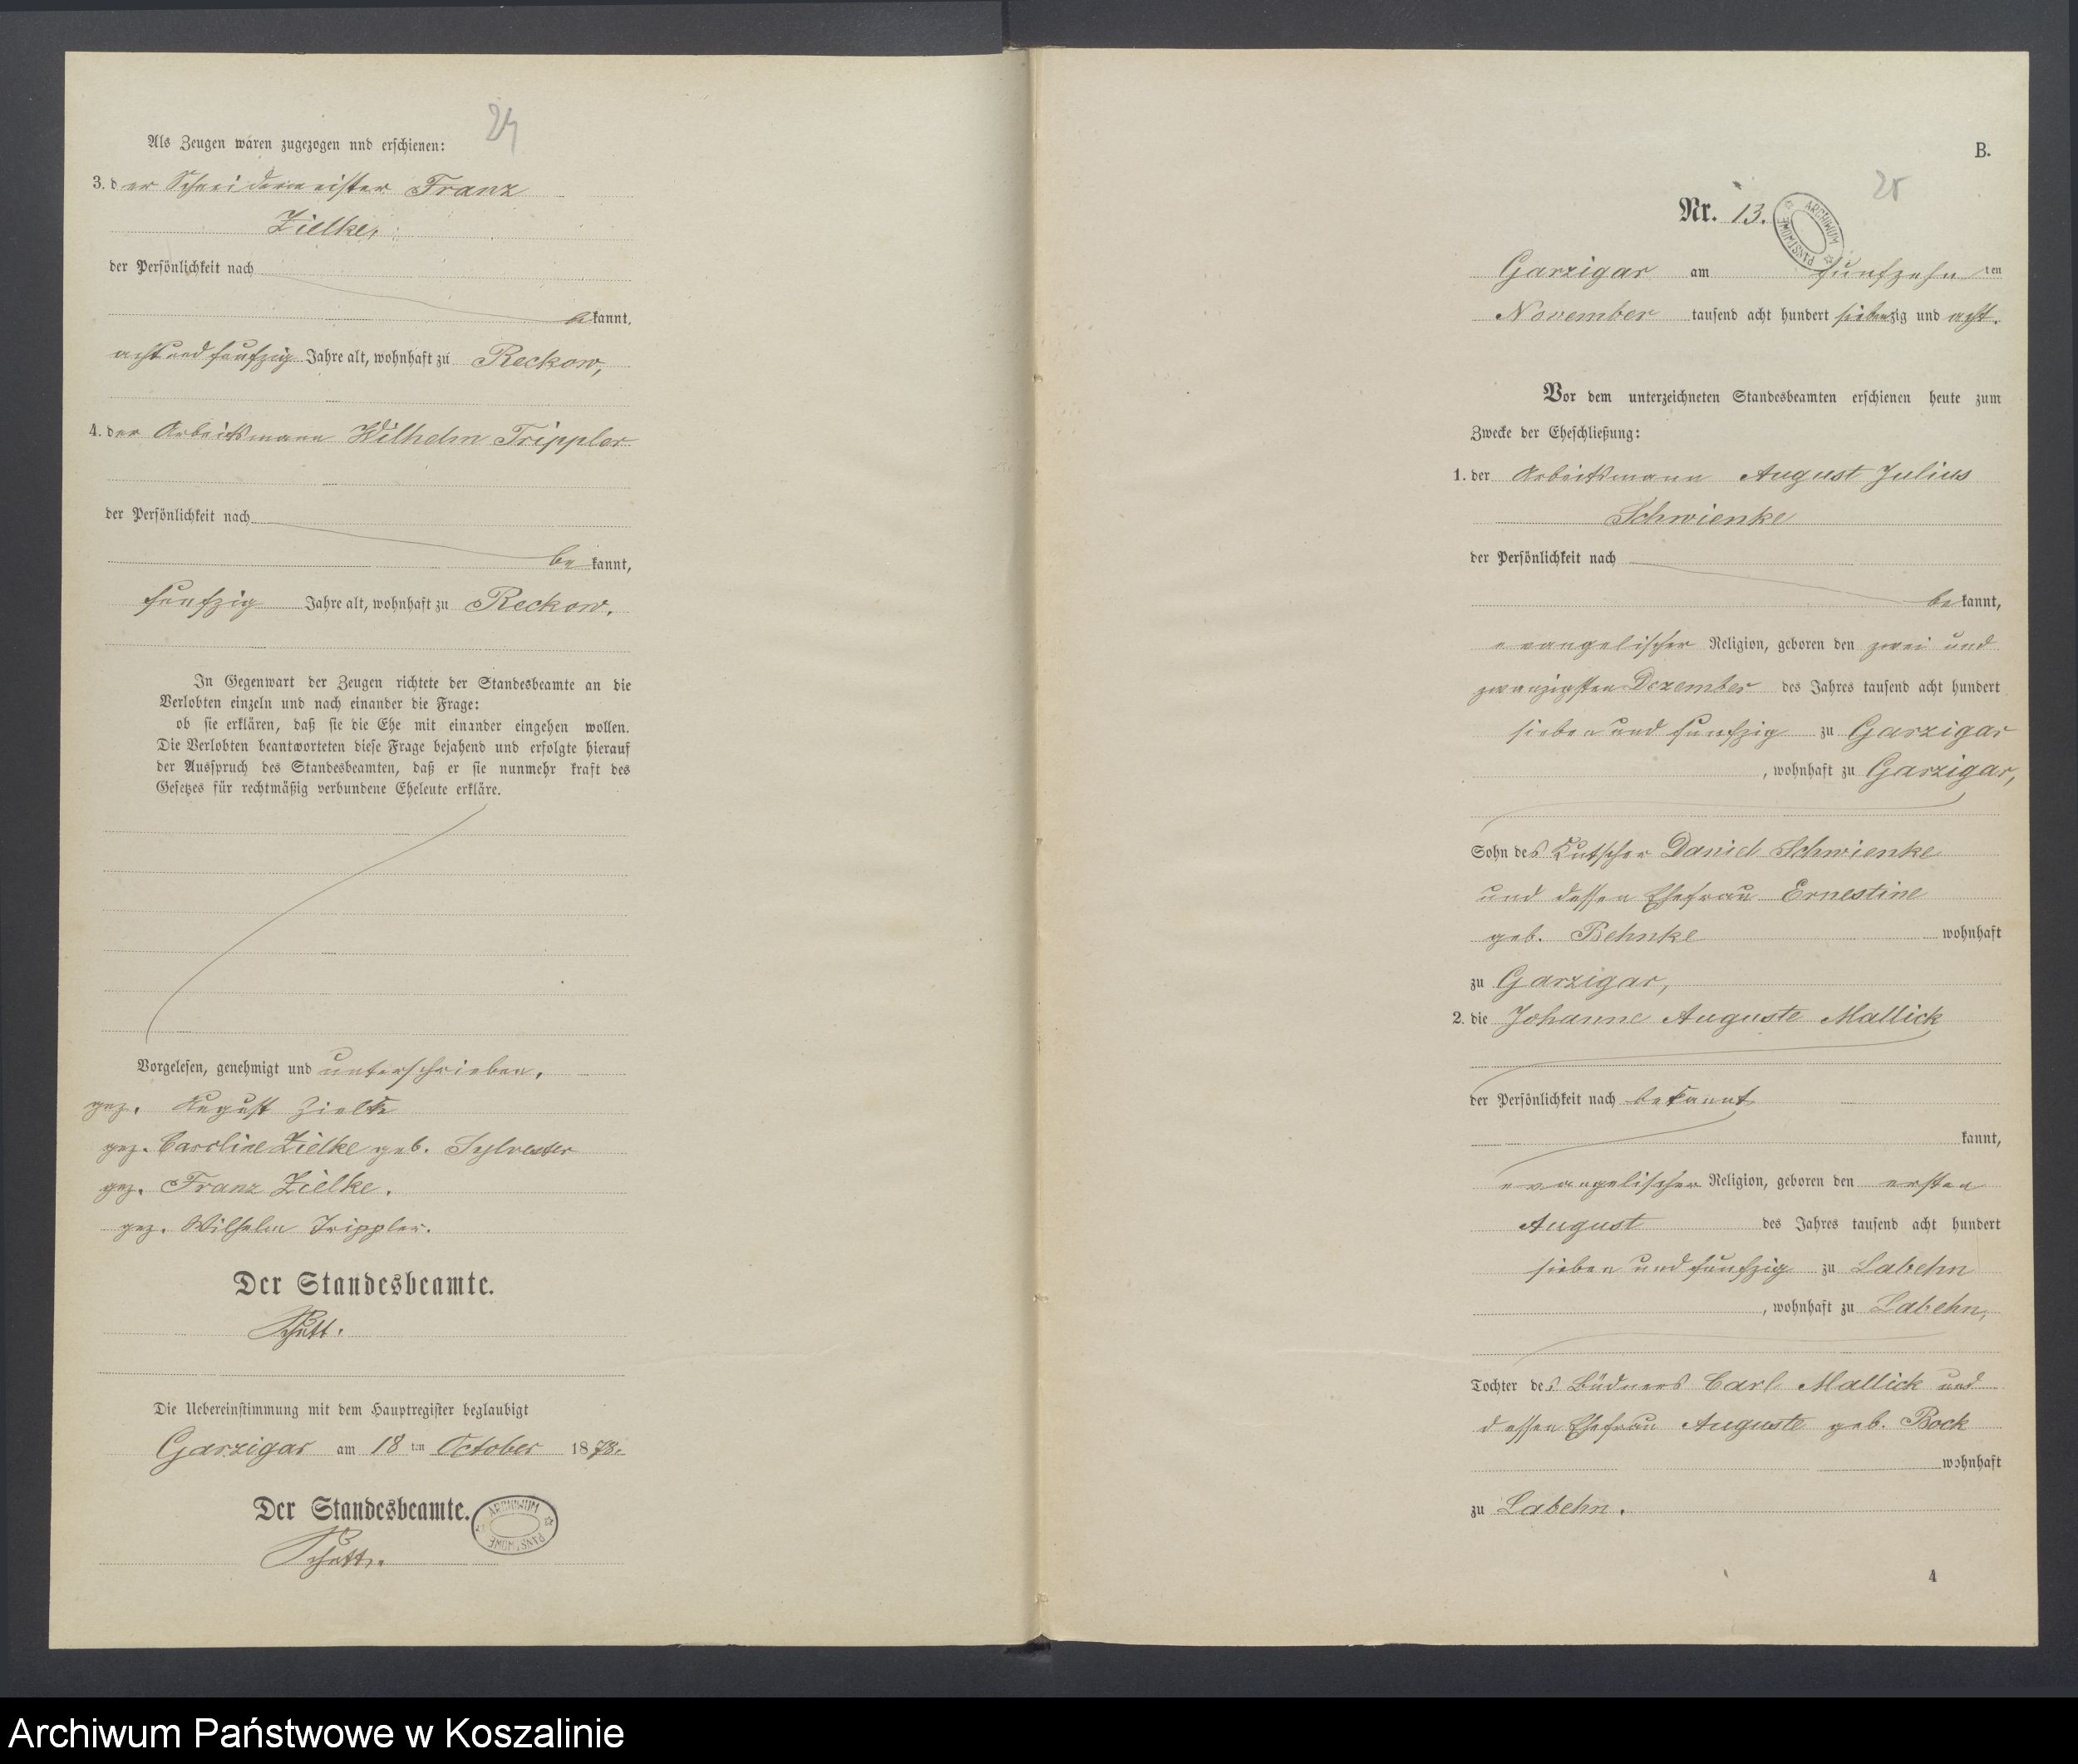 24
Als Zeugen waren zugezogen und erschienen:
3. der Schneidemeister Franz
Zielke,
der Persönlichkeit nach
bekannt,
acht und funfzig Jahre alt, wohnhaft zu Reckow,
4. der Arbeitsmann Wilhelm Trippler
der Persönlichkeit nach
bekannt,
funfzig Jahre alt, wohnhaft zu Reckow.
In Gegenwart der Zeugen richtete der Standesbeamte an die
Verlobten einzeln und nach einander die Frage:
ob sie erklären, daß sie die Ehe mit einander eingehen wollen.
Die Verlobten beantworteten diese Frage bejahend und erfolgte hierauf
der Ausspruch des Standesbeamten, daß er sie nunmehr kraft des
Gesetzes für rechtmäßig verbundene Eheleute erkläre.
Vorgelesen, genehmigt und unterschrieben.
gez. August Zielke
gez. Caroline Zielke geb. Sylvester
gez. Franz Zielke.
gez. Wilhelm Trippler.
Der Standesbeamte.
Schütt.
Die Uebereinstimmung mit dem Hauptregister beglaubigt
Garzigar am 18 ten October 1878.
Der Standesbeamte.
Schütt.
ARCHIWUM PAŃSTWOWE
B.
25
Nr. 13.
ARCHIWUM PAŃSTWOWE
Garzigar am funfzehn ten
November tausend acht hundert siebenzig und acht.
Vor dem unterzeichneten Standesbeamten erschienen heute zum
Zwecke der Eheschließung:
1. der Arbeitsmann August Julius
Schwienke
der Persönlichkeit nach
bekannt,
evangelischer Religion, geboren den zwei und
zwanzigsten Dezember des Jahres tausend acht hundert
sieben und funfzig zu Garzigar
, wohnhaft zu Garzigar,
Sohn des Kutscher Daniel Schwienke
und dessen Ehefrau Ernestine
geb. Behnke wohnhaft
zu Garzigar,
2. die Johanne Auguste Mallick
der Persönlichkeit nach bekannt
kannt,
evangelischer Religion, geboren den ersten
August des Jahres tausend acht hundert
sieben und funfzig zu Labehn
, wohnhaft zu Labehn,
Tochter des Büdners Carl Mallick und
dessen Ehefrau Auguste geb. Bock
wohnhaft
zu Labehn.
4
Archiwum Państwowe w Koszalinie